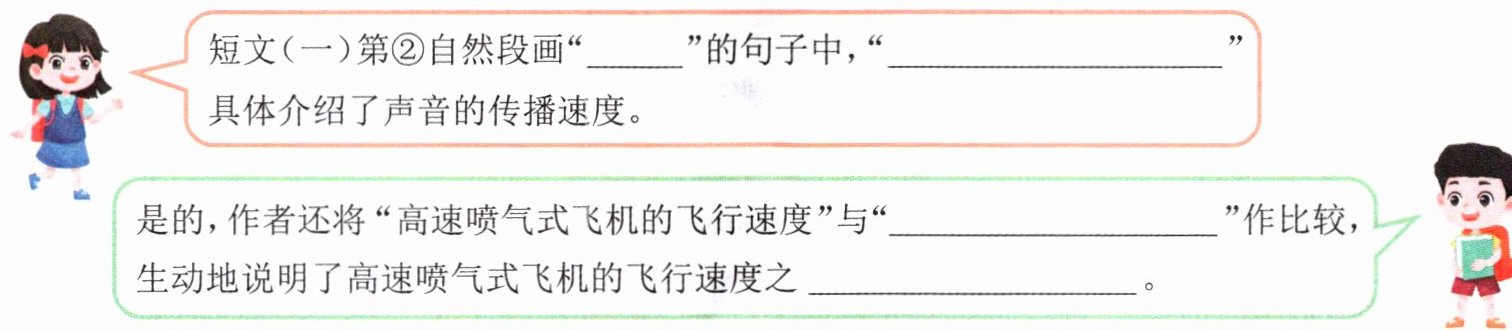 短文(一)第②自然段画“______”的句子中,“____________________”
具体介绍了声音的传播速度。
是的,作者还将“高速喷气式飞机的飞行速度”与“____________________”作比较,
生动地说明了高速喷气式飞机的飞行速度之____________________。